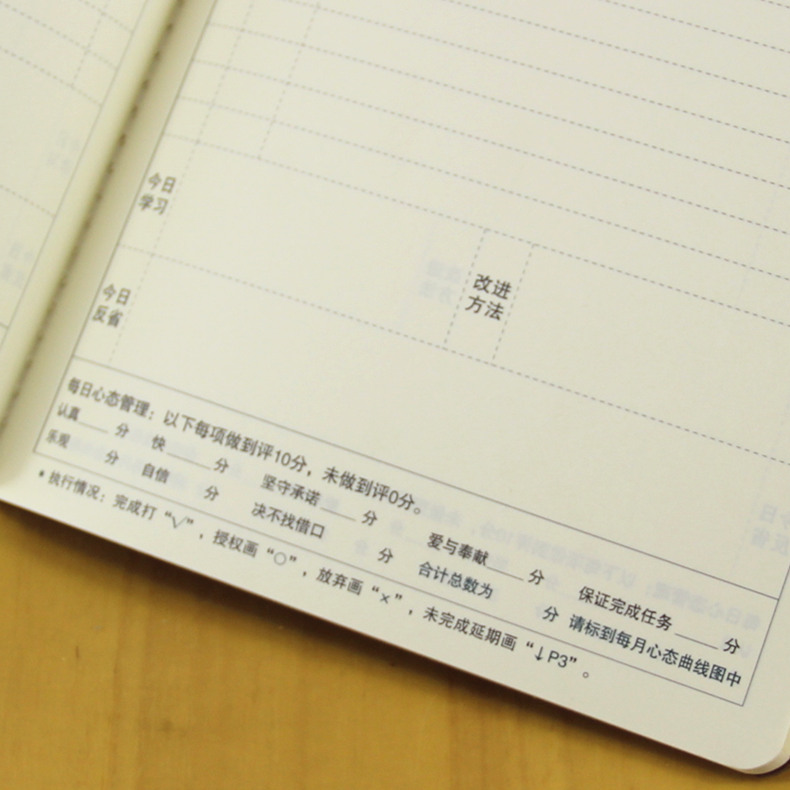 今日
学习
今日
反省
改进
方法
每日心态管理：以下每项做到评10分，未做到评0分。
认真____分 快____分 坚守承诺____分 爱与奉献____分 保证完成任务____分
乐观____分 自信____分 决不找借口____分 合计总数为____分 请标到每月心态曲线图中
*执行情况：完成打“√”，授权画“○”，放弃画“×”，未完成延期画“↓P3”。